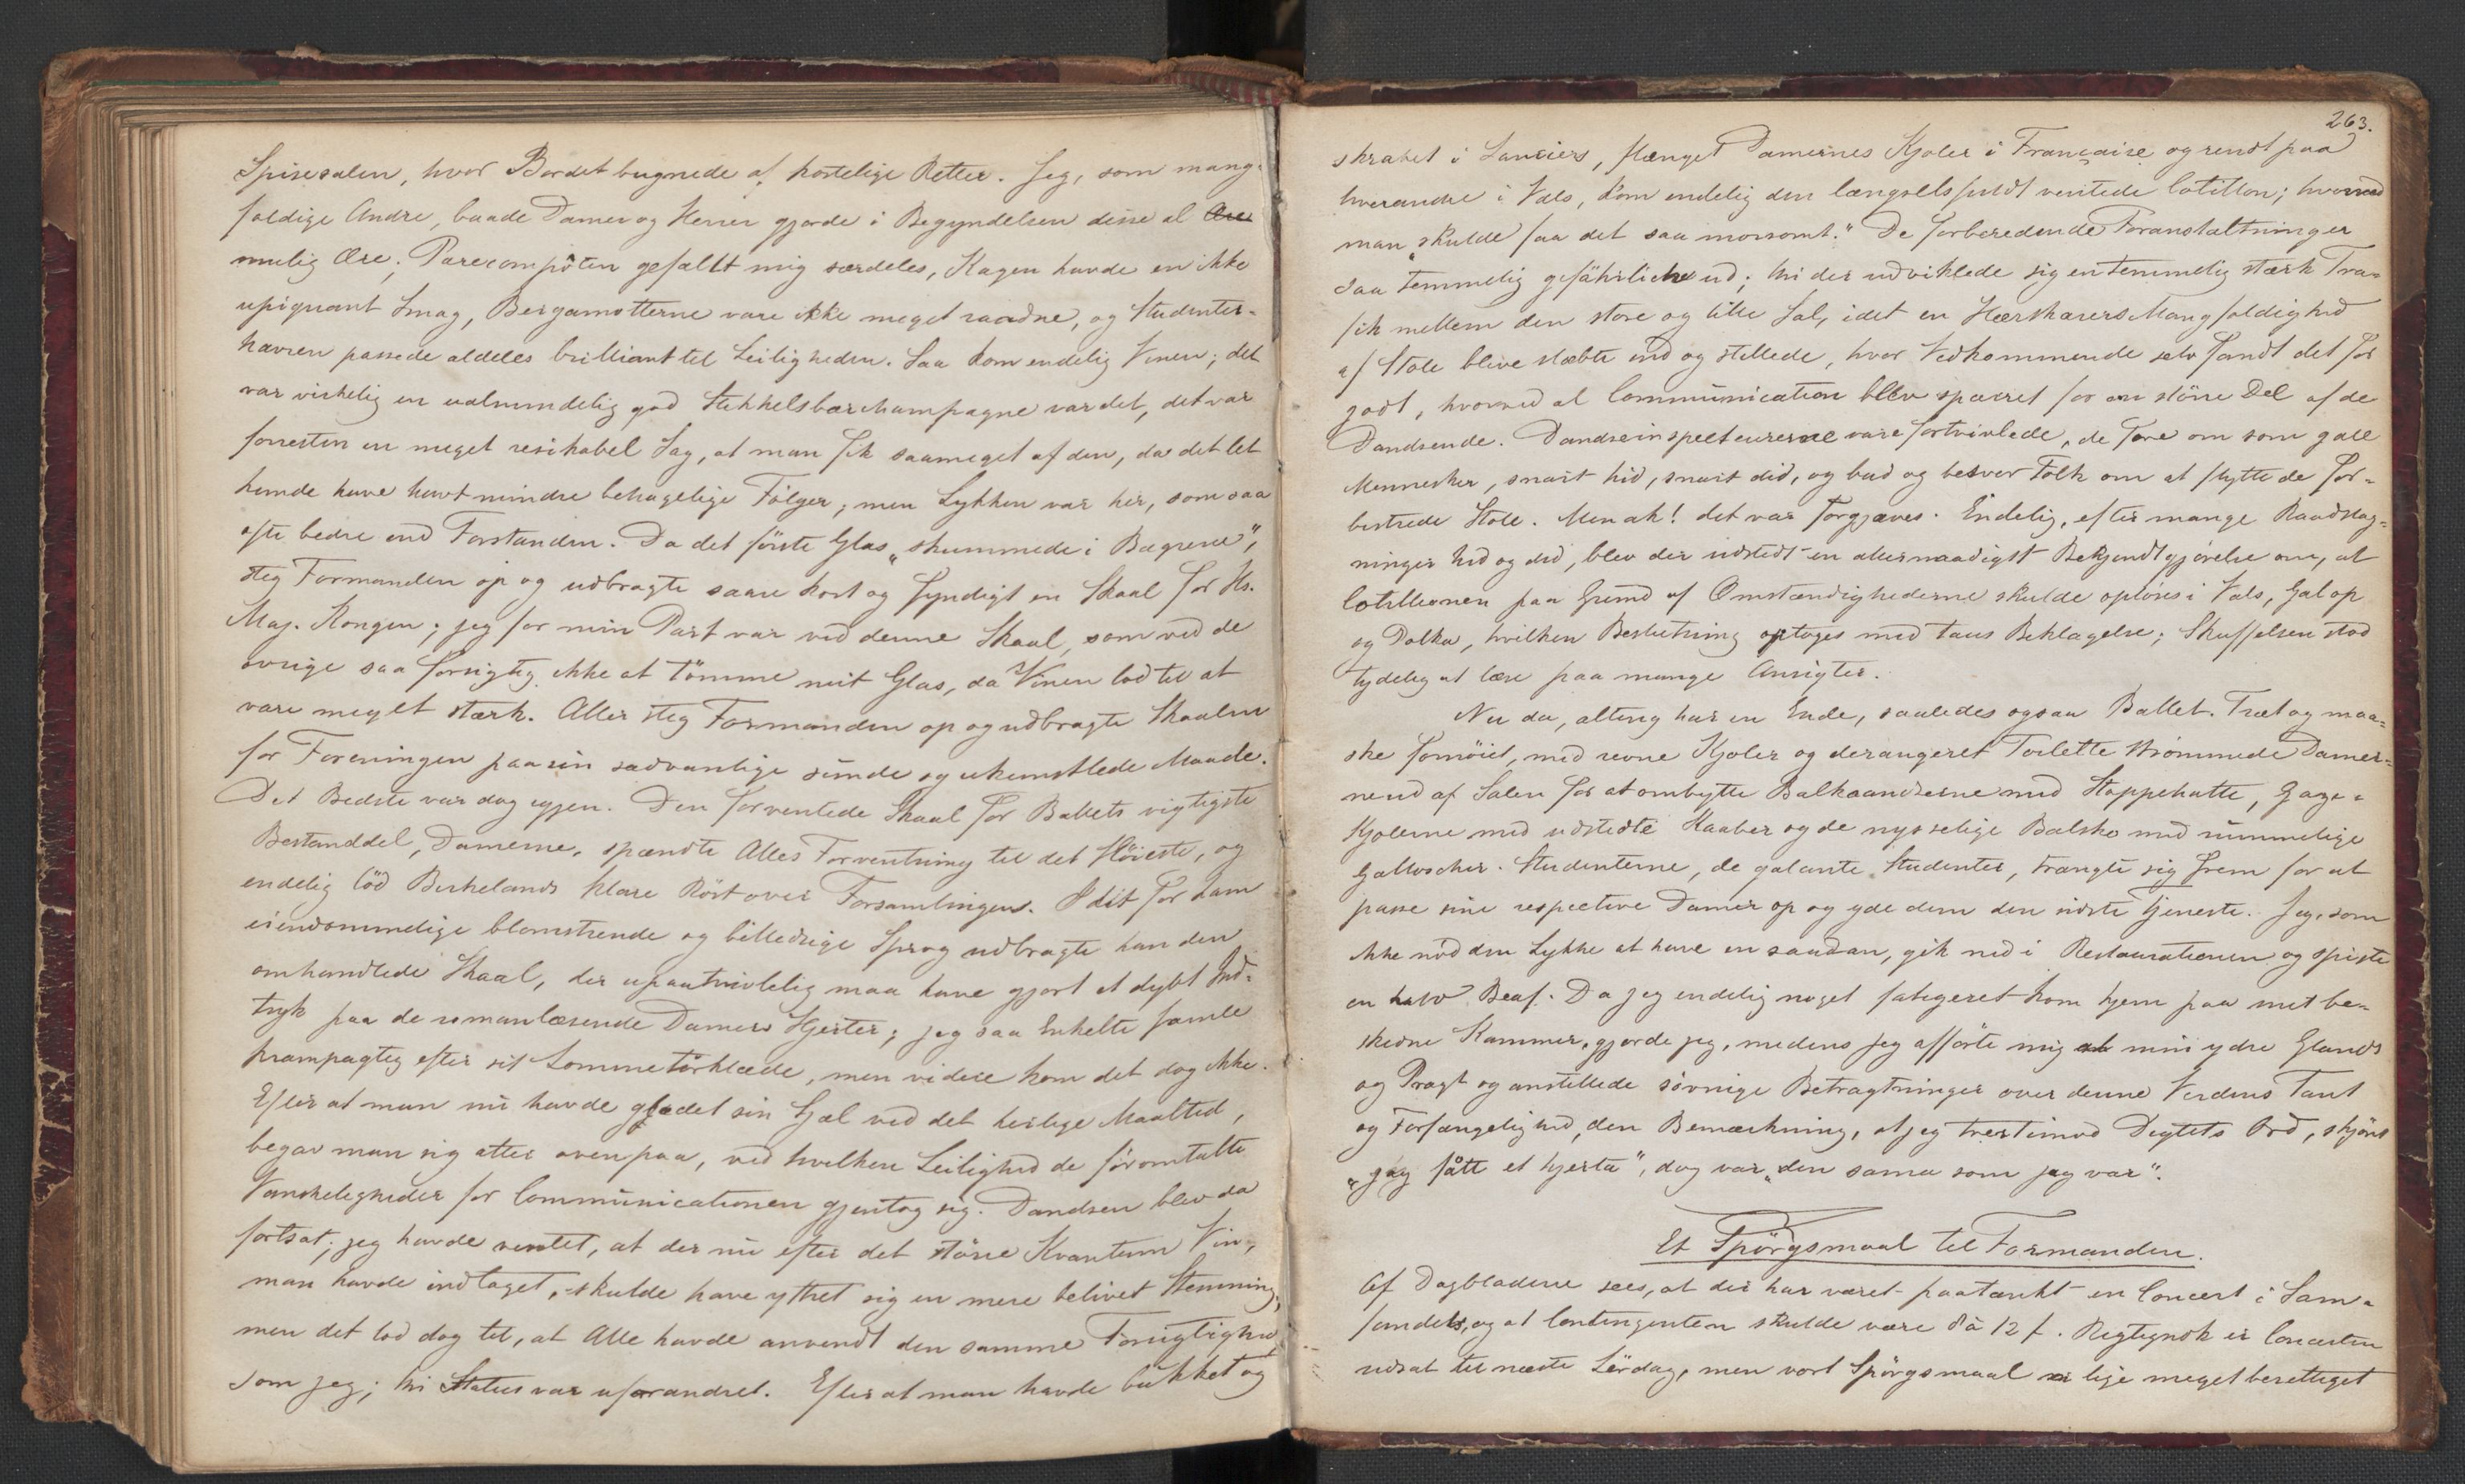 Spisesalen, hvor Bordet bugnede af kostelige Retter. Jeg, som mang-
foldige Andre, baade Damer og Herrer gjorde i Begyndelsen disse al Ære
mulig Ære; Pærecompôten gefallt mig særdeles, Kagen havde en ikke
upiquant Smag, Bergamotterne vare ikke meget raadne, og Studenter-
havren passede aldeles brilliant til Leiligheden. Saa kom endelig Vinen; det
var virkelig en ualmindelig god Stikkelsbærchampagne var det, det var
forresten en meget resikabel Sag, at man fik saameget af den, da det let
kunde have havt mindre behagelige Følger, men Lykken var her, som saa
ofte bedre end Forstanden. Da det første Glas „skummede i Bægrene“,
steg Formanden op og udbragte saare kort og fyndigt en Skaal for Hs.
Maj. Kongen; jeg for min Part var ved denne Skaal, som ved de
øvrige saa forsigtig ikke at tømme mit Glas, da Vinen lod til at
være meget stærk. Atter steg Formanden op og udbragte Skaalen
for Foreningen paa sin sædvanlige sunde og ukunstlede Maade.
Det Bedste var dog igjen. Den forventede Skaal for Ballets vigtigste
Bestanddel, Damerne, spændte Alles Forventning til det Høieste, og
endelig lød Birkelands klare Røst over Forsamlingen. I dit for ham
eiendommelige blomstrende og billedrige Sprog udbragte han den
omhandlede Skaal, der upaatvivlelig maa have gjort et dybt Ind-
tryk paa de romanlæsende Damers Hjerter; jeg saa Enkelte famle
krampagtig efter sit Lommetørklæde, men videre kom det dog ikke.
Efter at man nu havde glædet sin Sjæl ved det herlige Maaltid,
begav man sig atter ovenpaa, ved hvilken Leilighed de føromtalte
Vanskeligheder for Communicationen gjentog sig. Dandsen blev da
fortsat; jeg havde ventet, at der nu efter det større Kvantum Vin,
man havde indtaget, skulde have yttret sig en mere belivet Stemning,
men det lod dog til, at Alle havde anvendt den samme Forsigtighed
som jeg; thi Status var uforandret. Efter at man havde bukket og
263.
skrabet i Lanciers, flænget Damernes Kjoler i Française og rendt paa
hverandre i Vals, kom endelig den længselsfuldt ventede Cotillon; hvorved
man „skulde faa det saa morsomt.“ De forberedende Foranstaltninger
saa temmelig gefährliche ud; thi der udviklede sig en temmelig stærk Tra-
fik mellem den store og lille Sal, idet en Hærskarers Mangfoldighed
af Stole bleve slæbte ind og stillede, hvor Vedkommende selv fandt det for
godt, hvorved al Communication blev spærret for en større Del af de
Dandsende. Dandseinspecteurerne vare fortvivlede, de fore om som gale
Mennesker, snart hid, snart did, og bad og besvor Folk om at flytte de for-
bistrede Stole. Men ak! det var forgjæves. Endelig, efter mange Raadslag-
ninger hid og did, blev der udstedt en allernaadigst Bekjendtgjørelse om, at
Cotillionen paa Grund af Omstændighederne skulde opløses i Vals, Galop
og Polka, hvilken Beslutning optoges med taus Beklagelse; Skuffelsen stod
tydelig at læse paa mange Ansigter.
Nu da, alting har en Ende, saaledes ogsaa Ballet. Træt og maa-
ske fornøiet, med revne Kjoler og derangeret Toilette strømmede Damer-
ne ud af Salen for at ombytte Balkaandserne med Stoppehatte, Gaze-
Kjolerne med udstedte Kaaber og de nysselige Balsko med rummelige
Galloscher. Studenterne, de galante Studenter, trængte sig frem for at
passe sine respective Damer op og yde dem den sidste Tjeneste. Jeg, som
ikke nød den Lykke at have en saadan, gik ned i Restaurationen og spiste
en halv Beaf. Da jeg endelig noget fatigeret kom hjem paa mit be-
skedne Kammer, gjorde jeg, medens jeg afførte mig al min ydre Glands
og Pragt og anstillede søvnige Betragtninger over denne Verdens Tant
og Forfængelighed, den Bemærkning, at jeg tvertimod Digtets Ord, skjønt
„jag fått et hjerta“, dog var „den sama som jag var“.
Et Spørgsmaal til Formanden.
Af Dagbladene sees, at der har været paatænkt en Concert i Sam-
fundet, og at Contingenten skulde være 8 à 12 f. Rigtignok er Concerten
udsat til næste Lørdag, men vort Spørgsmaal er lige meget berettiget